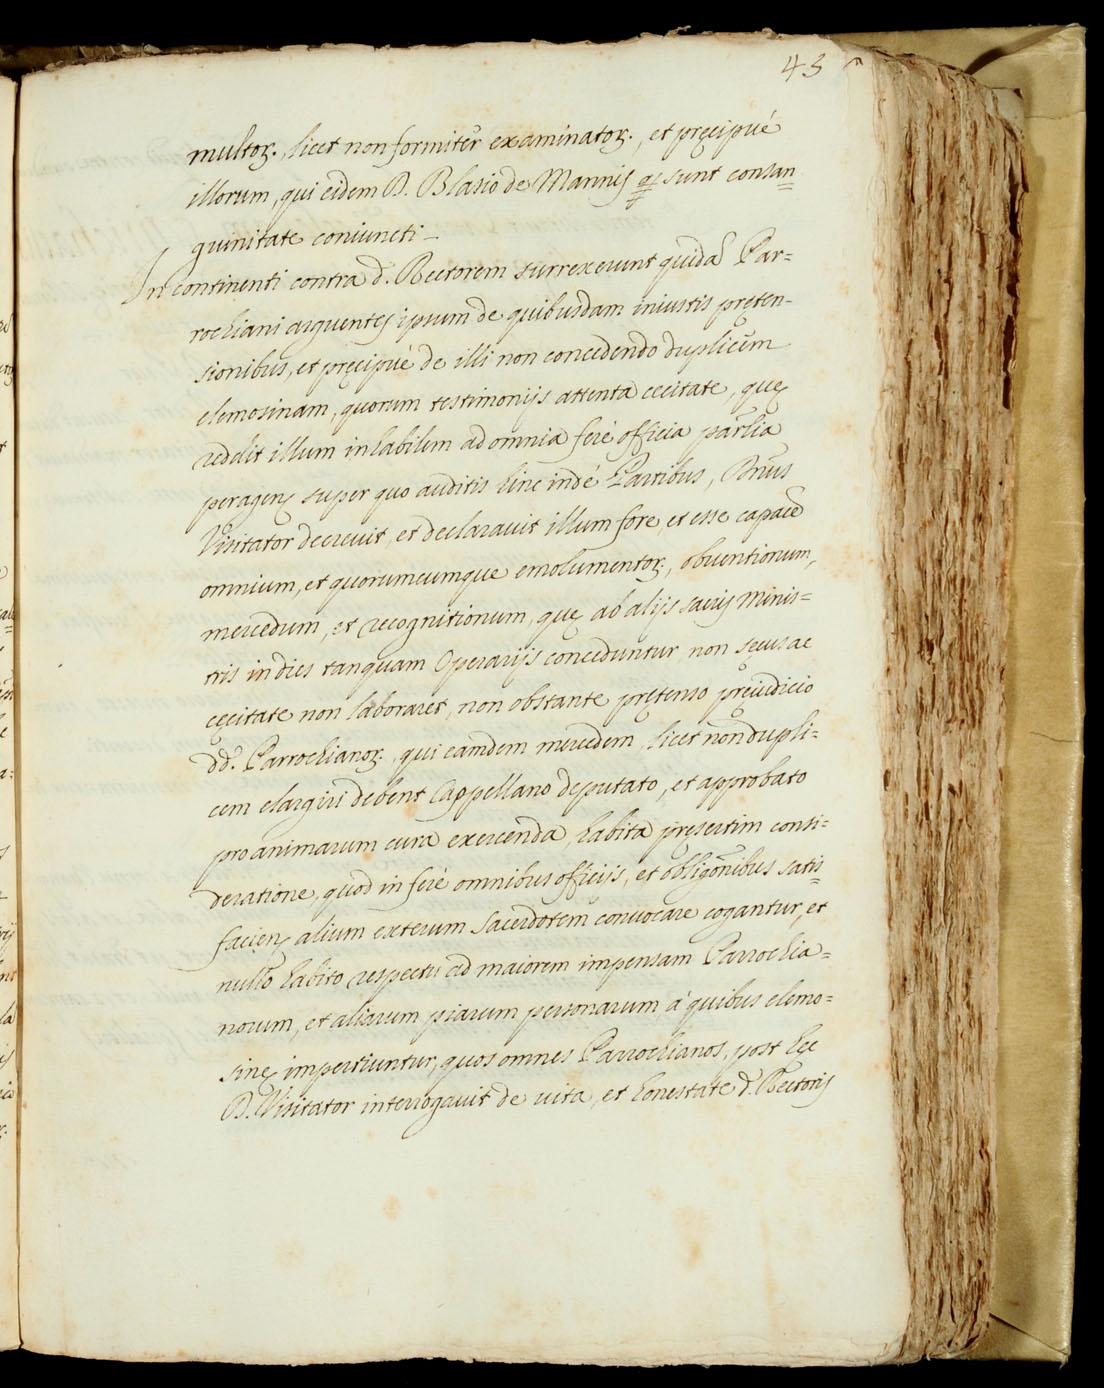 43
multoꝝ., licet non formitẽr examinatoꝝ., et pręcipué
illorum, qui eidem D. Blasio de Mannis sunt consan=
guinitate coniuncti _
Incontinenti contra d. Rectorem surrexerunt quidã Par=
rochiani arguentes ipsum de quibusdam iniustis pręten-
sionibus, et pręcipué de illi non concedendo duplicem
elemosinam, quorum testimonijs attenta cecitate, quę
reddit illum inhabilem ad omnia feré officia parlia
peragenꝫ super quo auditis hinc indé Partibus, Dnus
Visitator decrevit, et declaravit illum fore et esse capacẽ
omnium, et quorumcumque emolumentoꝝ., obventionum,
mercedum, et recognitionum, quę ab alijs sacris Minis=
tris in dies tanquam Operarijs conceduntur non secus ac
cęcitate non laboraret, non obstante prętenso pręiudicio
dd. Parrochianoꝝ., qui eamdem mercedem, licet non dupli=
cem elargiri debent Cappellano deputato, et approbato
pro animarum cura exercenda, habita pręsertim consi=
deratione, quod in feré omnibus officijs, et obligõnibus satis=
facienꝫ alium exterum Sacerdotem convocare cogantur, et
nullo habito respectu ad maiorem impensam Parrochia=
norum, et aliarum piarum personarum á quibus elemo=
sinę impertiuntur, quos omnes Parrochianos, post hęc
D. Visitator interrogavit de vita, et honestate d. Rectoris